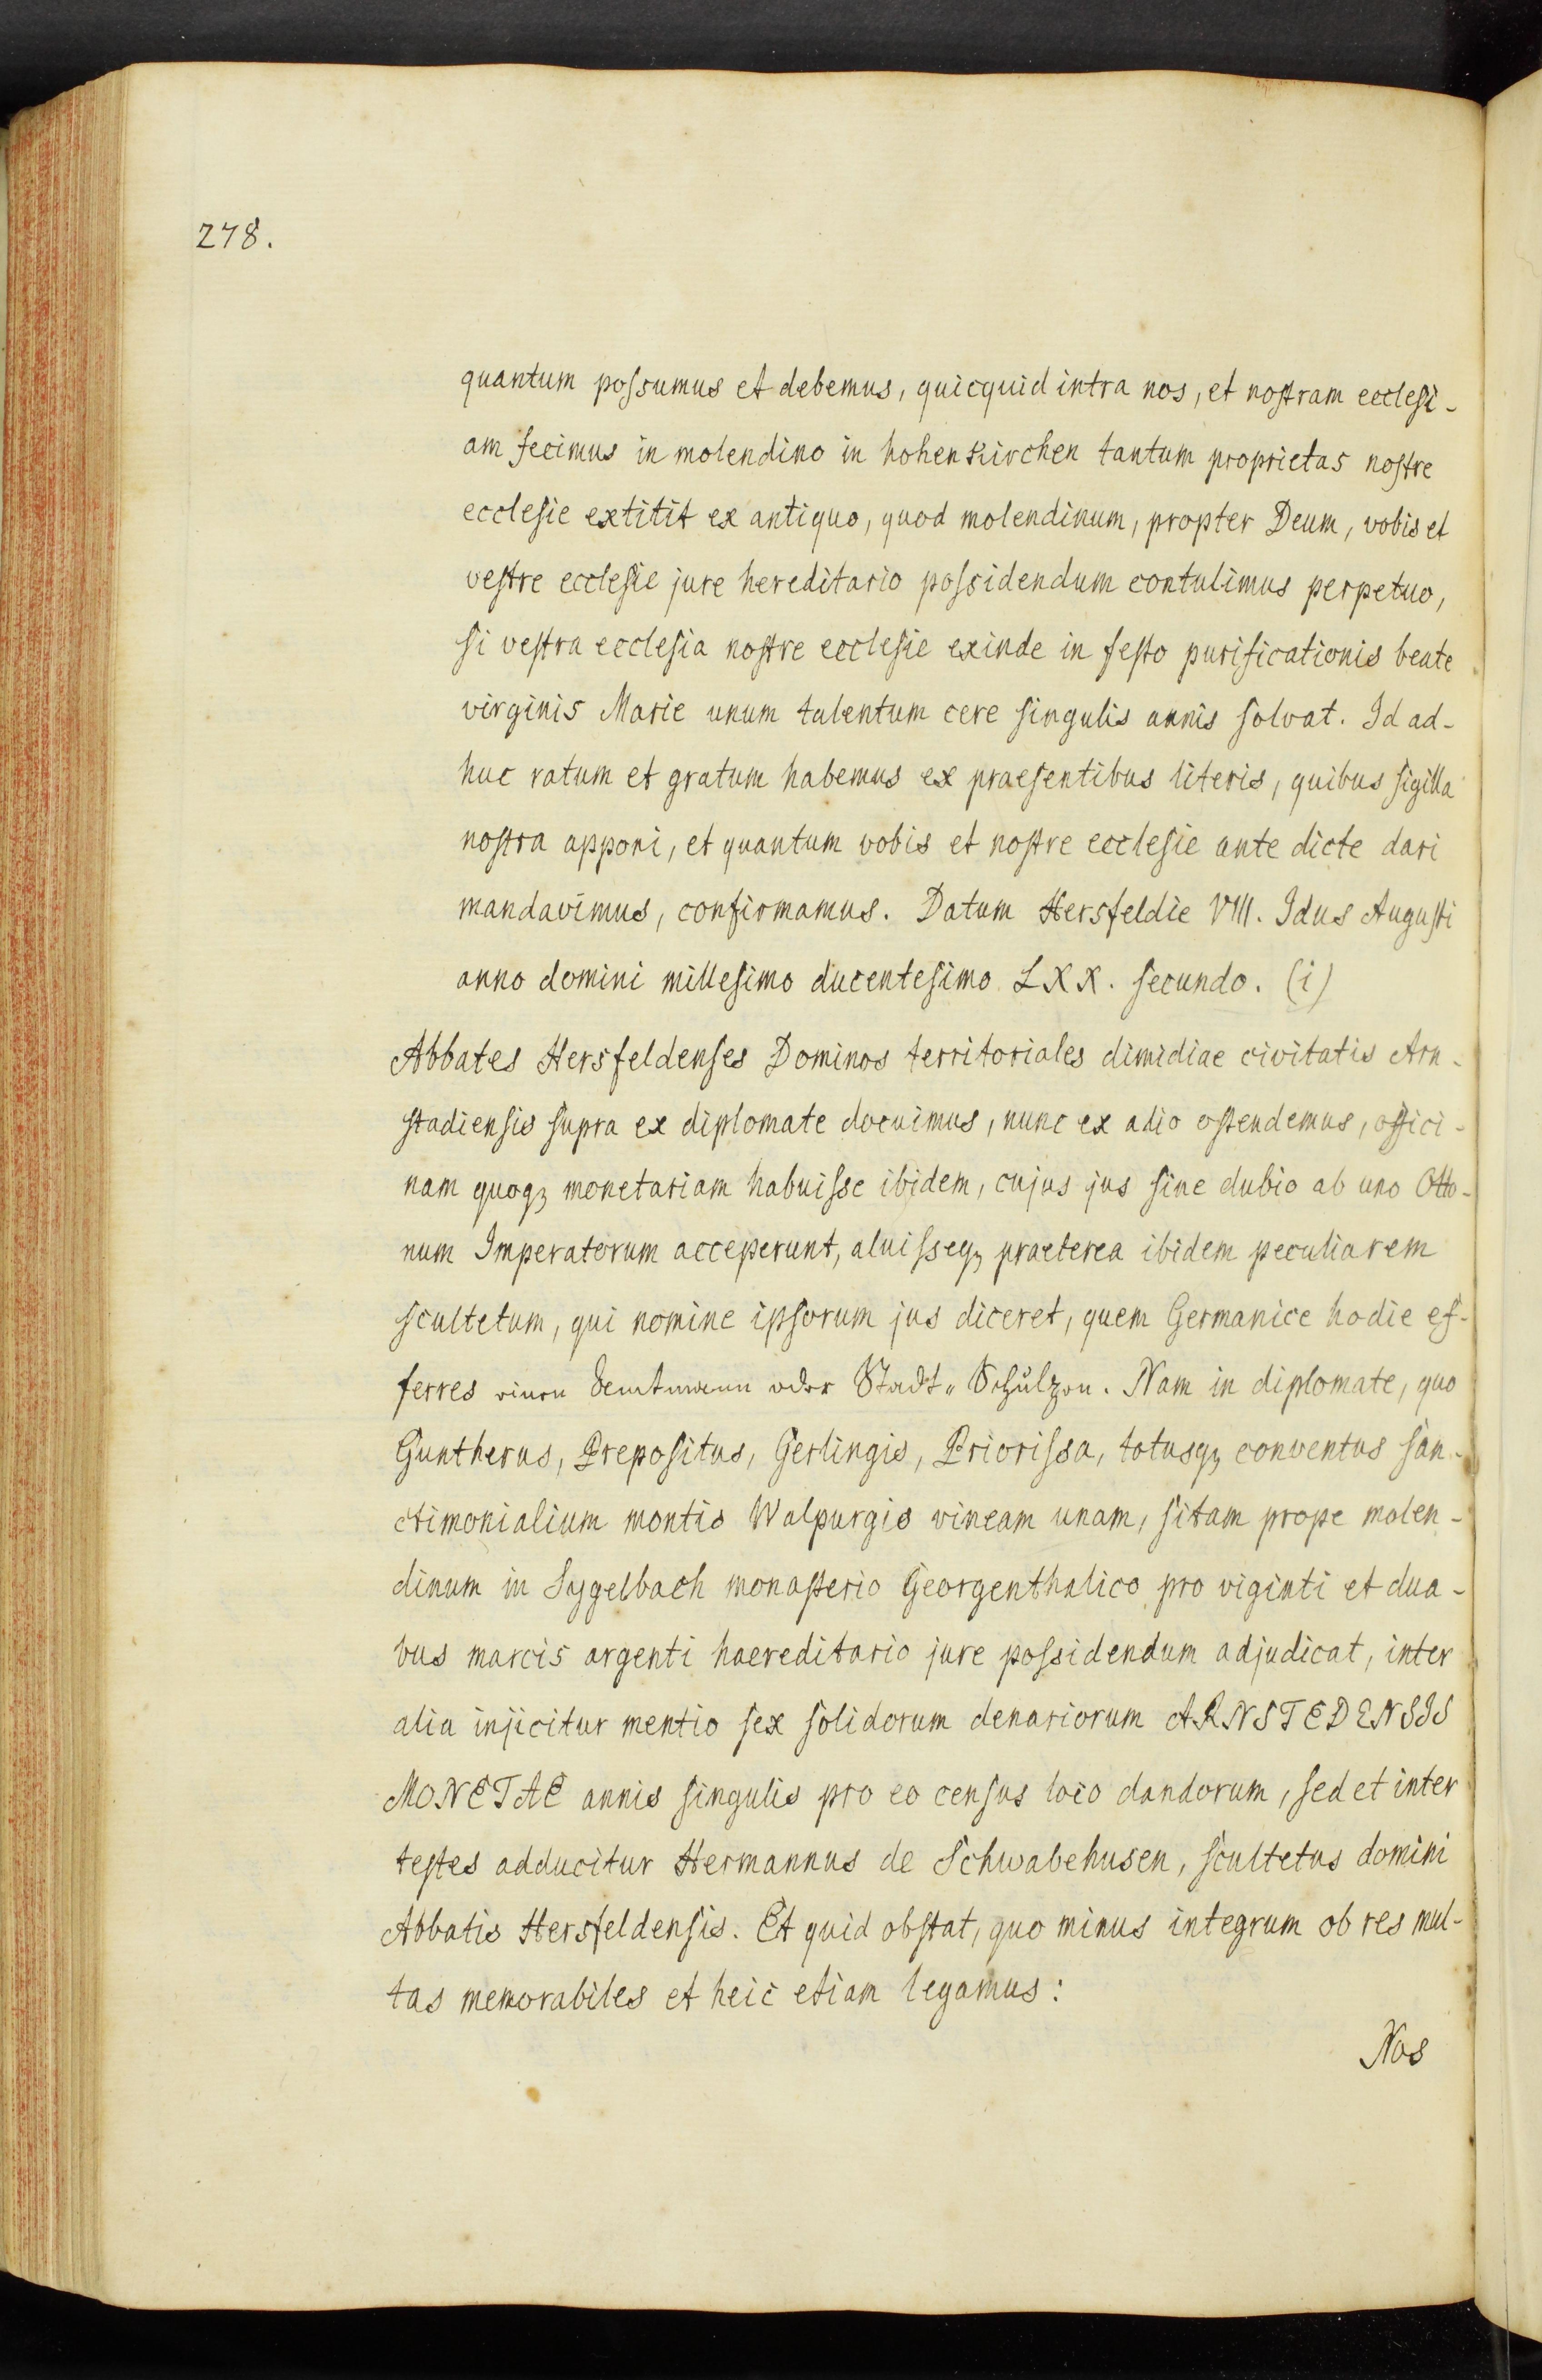 278.
quantum possumus et debemus, quicquid intra nos, et nostram ecclesi-
am fecimus in molendino in hohenkirchen tantum proprietas nostre
ecclesie extitit ex antiquo, quod molendinum, propter Deum, vobis et
vestre ecclesie jure hereditario possidendum contulimus perpetuo,
si vestra ecclesia nostre ecclesie exinde in festo purificationis beate
virginis Marie unum talentum cere singulis annis solvat. Id ad-
huc ratum et gratum habemus ex praesentibus literis, quibus sigilla
nostra apponi, et quantum vobis et nostre ecclesie ante dicte dari
mandavimus, confirmamus. Datum Hersfeldie VIII. Idus Augusti
anno domini millesimo ducentesimo LXX. secundo. (i)
Abbates Hersfeldenses Dominos territoriales dimidiae civitatis Arn-
stadiensis supra ex diplomate docuimus, nunc ex adio ostendemus, offici-
nam quoqꝫ monetariam habuisse ibidem, cujus jus sine dubio ab uno Otto-
num Imperatorum acceperunt, aluisseqꝫ praeterea ibidem peculiarem
scultetum, qui nomine ipsorum jus diceret, quem Germanice hodie ef-
ferres einen Beamtmann oder Stadt-Schulzen. Nam in diplomate, quo
Guntherus, Prepositus, Gerlingis, Priorissa, totusqꝫ conventus san-
ctimonialium montis Walpurgis vineam unam, sitam prope molen-
dinum in Syggelbach monasterio Georgenthalico pro viginti et dua-
bus marcis argenti haereditario jure possidendum adjudicat, inter
alia injicitur mentio sex solidorum denariorum ARNSTEDENSIS
MONETAE annis singulis pro eo census loco dandorum, sed et inter
testes adducitur Hermannus de Schwabehusen, scultetus domini
Abbatis Hersfeldensis. Et quid obstat, quo minus integrum ob res mul-
tas memorabiles et heic etiam legamus:
Nos